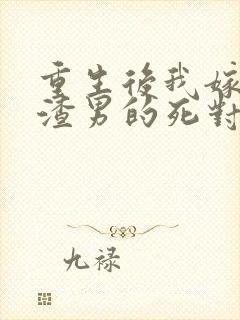 重生後我嫁
渣男的死對
九禄